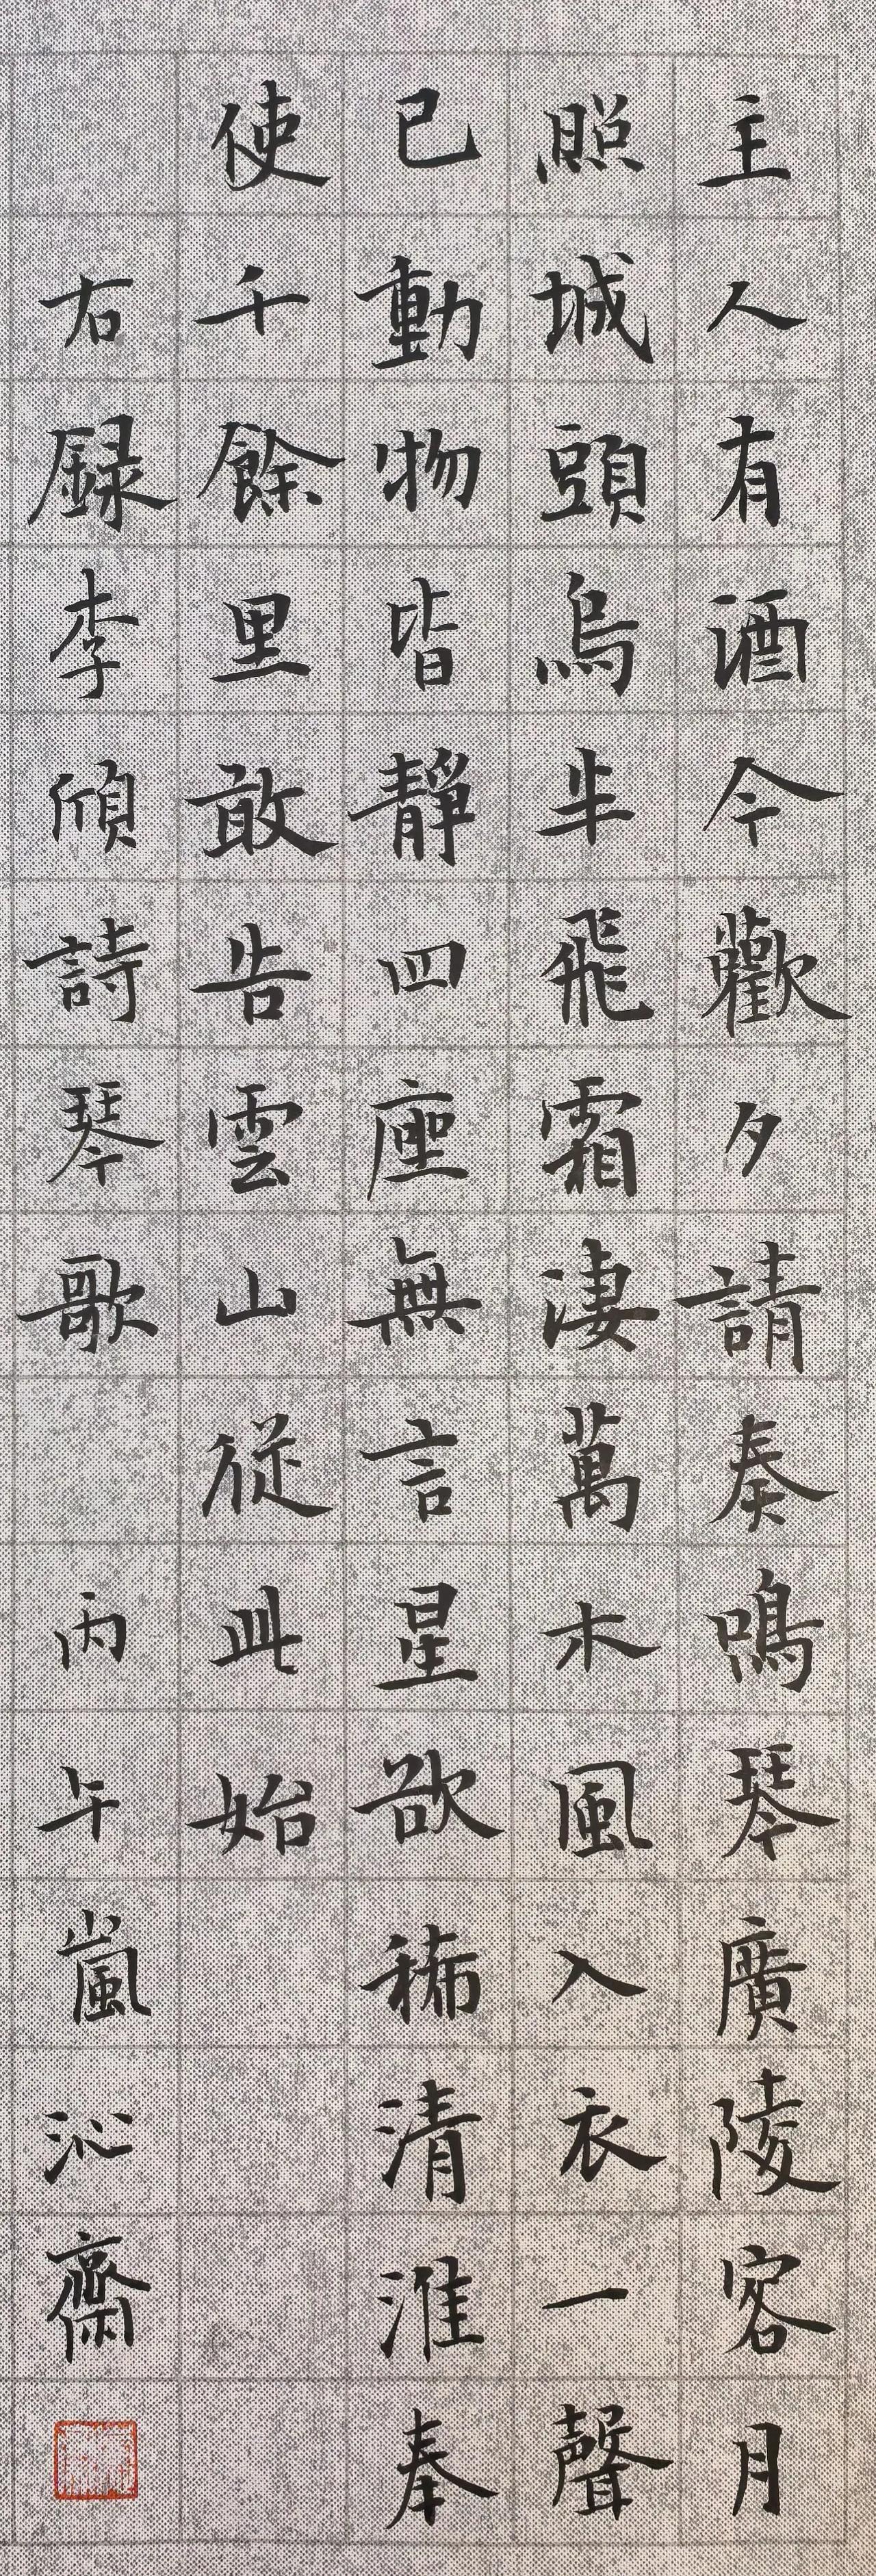 主人有酒今歡夕請奏鳴琴廣陵客月
照城頭烏半飛霜淒萬木風入衣一聲
已動物皆靜四座無言星欲稀清淮奉
使千餘里敢告雲山從此始
右録李頎詩琴歌 丙午嵐沁齋